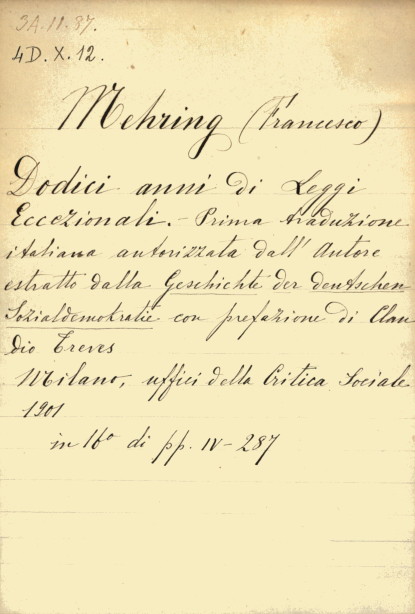 3A.11.37.
4D.X.12.
Mehring (Francesco)
Dodici anni di Leggi
Eccezionali. - Prima traduzione
italiana autorizzata dall' Autore
estratto dalla Geschichte der deutschen
Sozialdemokratie con prefazione di Clau
dio Treves
Milano, uffici della Critica Sociale
1901
in 16° di pp. IV - 287